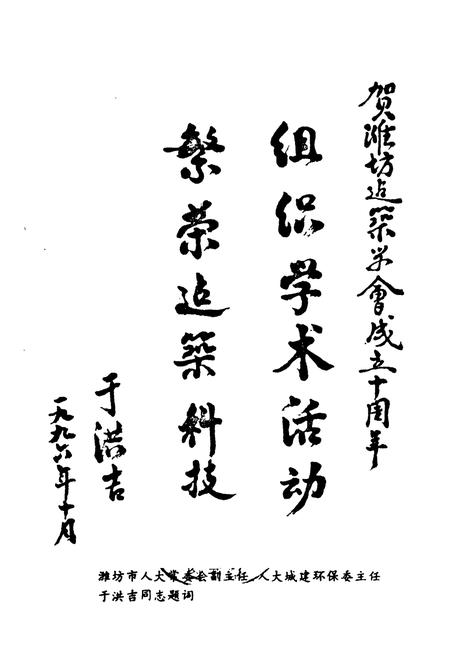 贺潍坊迠築学會成立十周年
组织学术活动
繁荣迠築科技
于洪吉
一九九六年十月
潍坊市人大常委会副主任、人大城建环保委主任
于洪吉同志题词